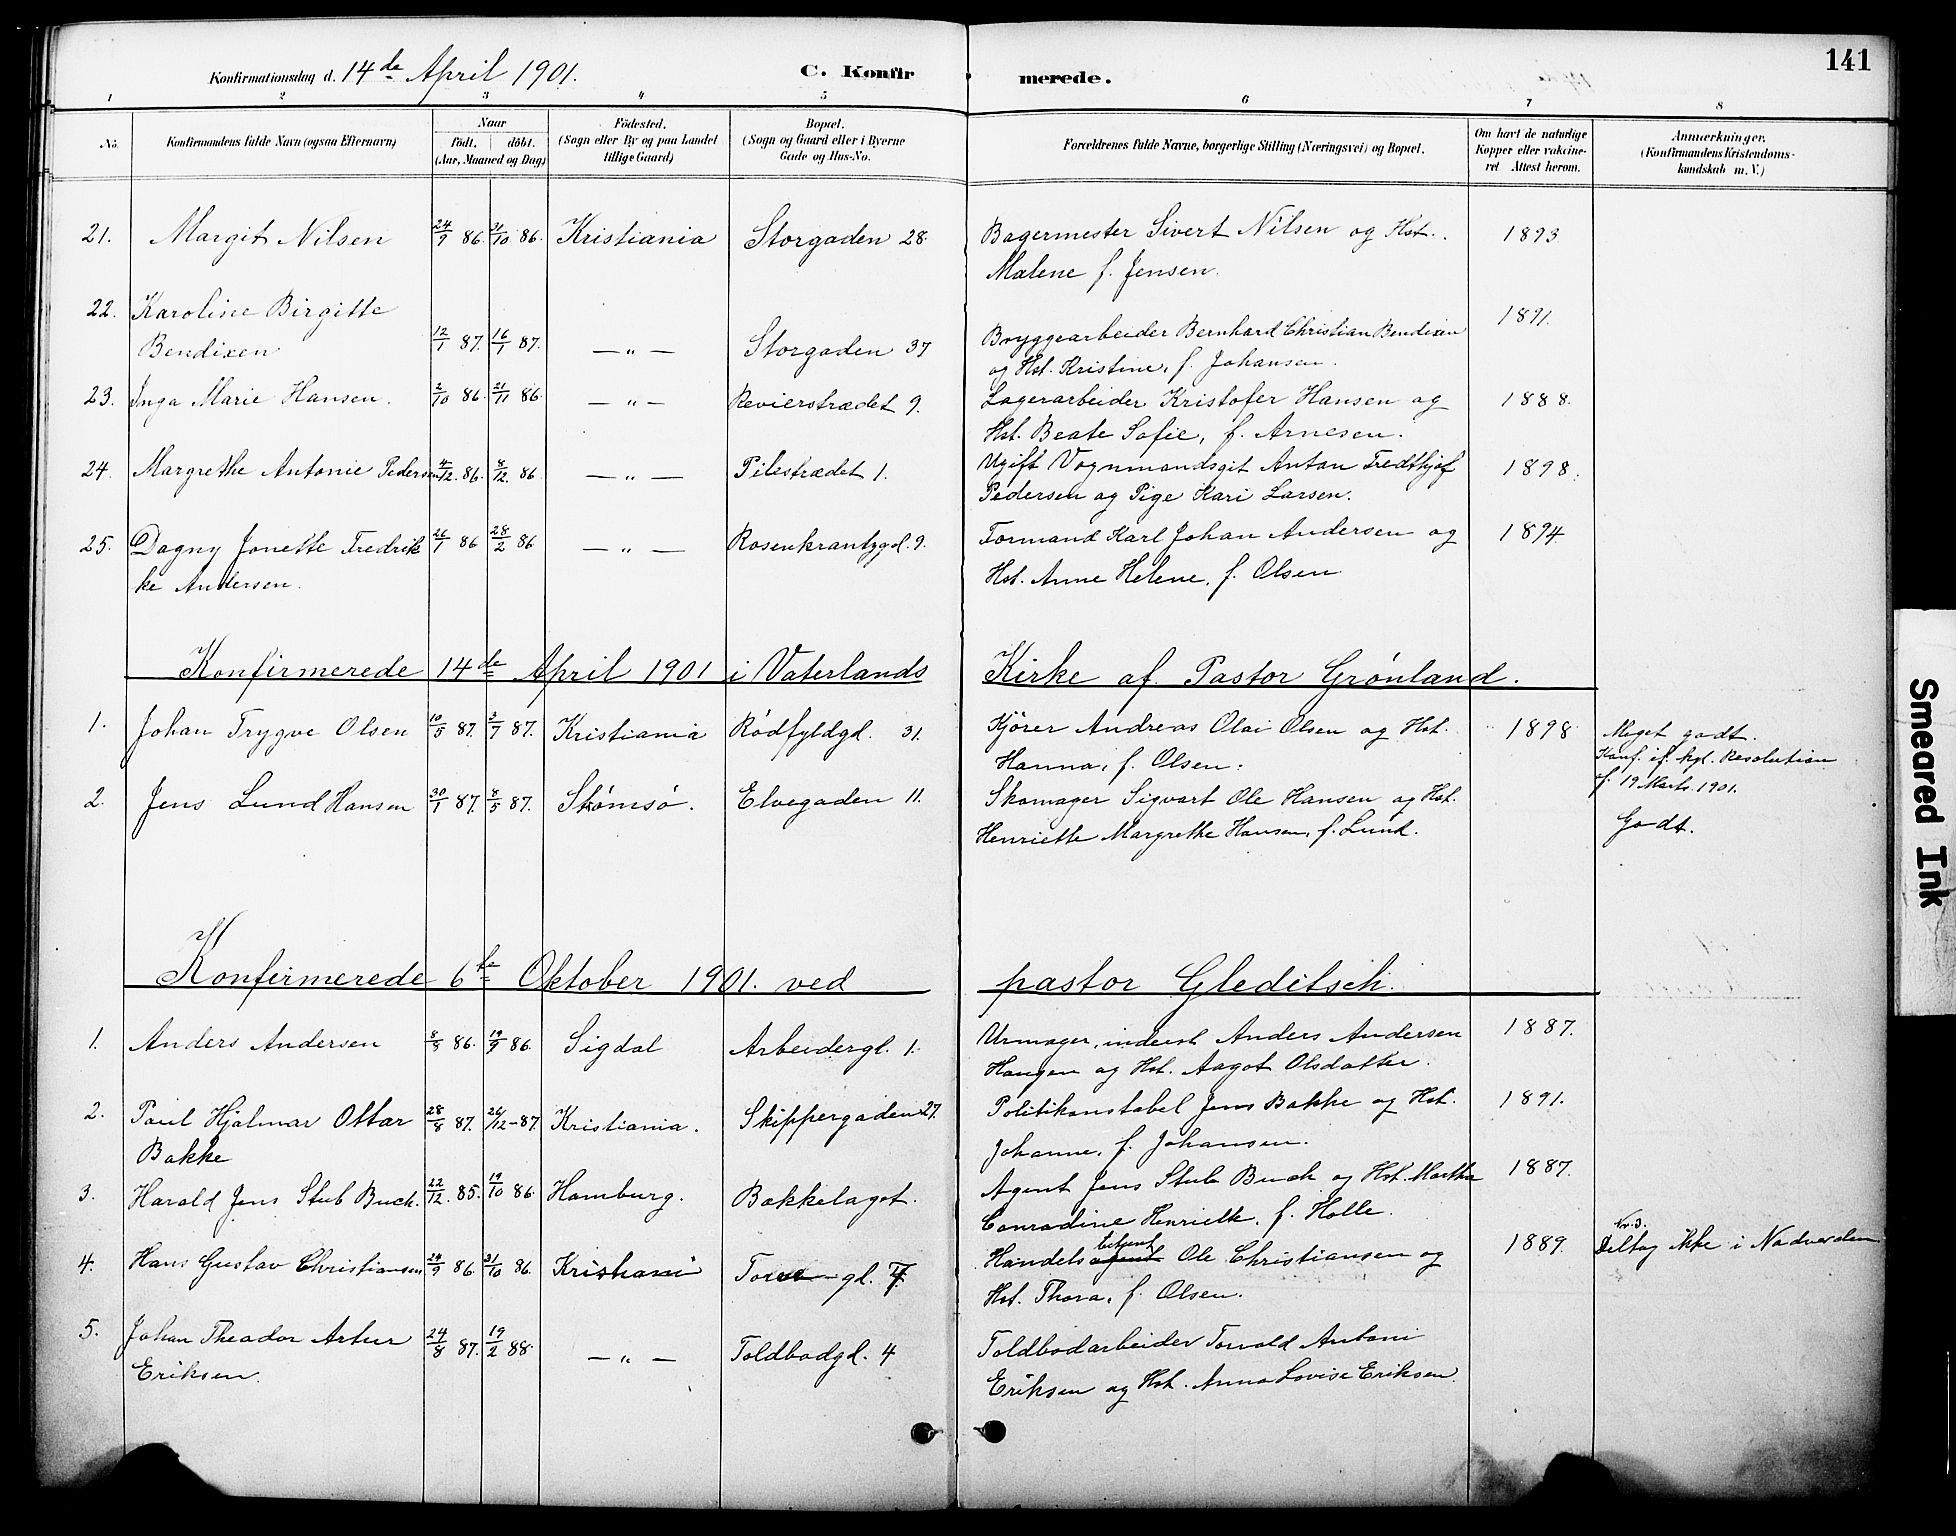 Konfirmationsdag d. 14de April 1901. C. Konfirmerede. 141
1 2 3 4 5 6 7 8
No. Konfirmandens fulde Navn (ogsaa Efternavn) Naar födt. döbt. (Aar, Maaned og Dag) Födested. (Sogn eller By og paa Landet tillige Gaard) Bopæl. (Sogn og Gaard eller i Byerne Gade og Hus-No. Forældrenes fulde Navne, borgerlige Stilling (Næringsvei) og Bopæl. Om havt de naturlige Kopper eller vakcineret Attest herom. Anmærkninger. (Konfirmandens Kristendomskundskab m. V.)
21. Margit Nilsen 24/9 86. 31/10 86. Kristiania Storgaden 28. Bagermester Sivert Nilsen og Hst. 1893
Malene f. Jensen.
22. Karoline Birgitte 1891.
Bendixen 12/1 87. 16/1 87. —„— Storgaden 37 Bryggearbeider Bernhard Christian Bendixen
og Hst. Kristine, f. Johansen.
23. Inga Marie Hansen. 2/10 86. 21/11 86. —„— Revierstrædet 9. Lagerarbeider Kristofer Hansen og 1888.
Hst. Beate Sofie, f. Arnesen.
24. Margrethe Antonie Pedersen 4/12. 86. 8/12. 86 —„— Pilestrædet 1. Ugift Vognmandsgut Anton Fredthjof 1898.
Pedersen og Pige Kari Larsen.
25. Dagny Jonette Fredrik 26/1 86 28/2 86 —„— Rosenkrantzgd. 9. Formand Karl Johan Andersen og 1894
ke Andersen. Hst. Anne Helene, f. Olsen
Konfirmerede 14de April 1901 i Vaterlands Kirke af Pastor Grønland.
1. Johan Trygve Olsen 10/5 87. 3/7 87. Kristiania Rødfyldgd. 31. Kjører Andreas Olai Olsen og Hst. 1898 Meget godt.
Hanna, f. Olsen. Konf. if. kgl. Resolution
af 19 Marts 1901.
2. Jens Lund Hansen 30/1 87. 8/5 87. Strømsø. Elvegaden 11. Skomager Sigvart Ole Hansen og Hst. Godt.
Henriette Margrethe Hansen, f. Lund.
Konfirmerede 6te Oktober 1901. ved pastor Gleditsch.
1. Anders Andersen 8/8 86. 19/9 86. Sigdal Arbeidergd. 1. Urmager, inderst Anders Andersen 1887.
Haugen og Hst. Aagot Olsdatter.
2. Paul Hjalmar Ottar 28/8 87. 26/12-87. Kristiania. Skippergaden 27. Politikonstabel Jens Bakke og Hst. 1891.
Bakke Johanne, f. Johansen.
3. Harald Jens Stub Buch. 22/12. 85. 19/10 86. Hamburg. Bækkelaget. Agent Jens Stub Buch og Hst. Martha 1887.
Conradine Henriette, f. Holle. No. 3.
4. Hans Gustav Christiansen 24/9 86. 31/10 86. Kristiani gd. Handelsagent betjent Ole Christiansen og 1889. Deltog ikke i Nadverden
Hst. Thora, f. Olsen.
5. Johan Theodor Artur 24/8 87. 19/2 88. —„— Toldbodgd. 4 Toldbodarbeider Torvald Antoni
Eriksen. Eriksen og Hst. Anna Lovise Eriksen.
Smeared Ink